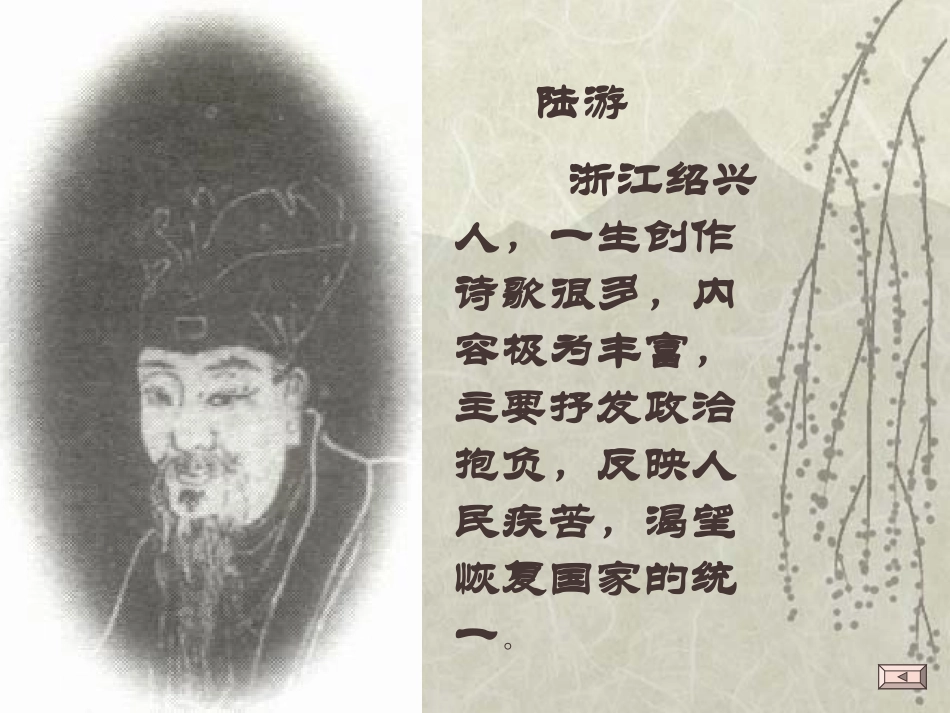 陆游
浙江绍兴
人，一生创作
诗歌很多，内
容极为丰富，
主要抒发政治
抱负，反映人
民疾苦，渴望
恢复国家的统
一。